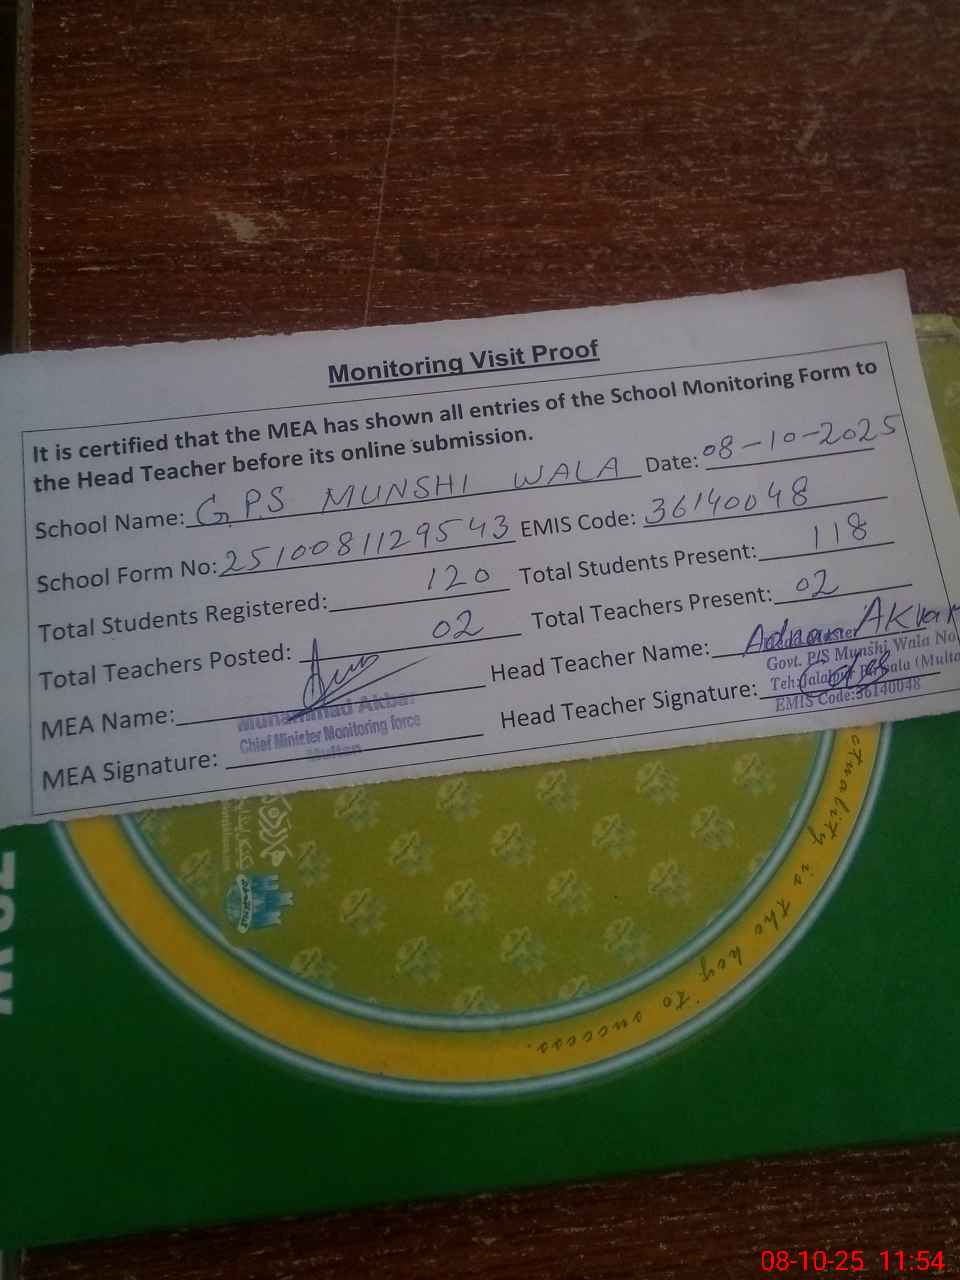 Monitoring Visit Proof
It is certified that the MEA has shown all entries of the School Monitoring Form to
the Head Teacher before its online submission.
School Name: G.P.S MUNSHI WALA Date: 08-10-2025
School Form No: 2510081129543 EMIS Code: 36140048
Total Students Registered: 120 Total Students Present: 118
Total Teachers Posted: 02 Total Teachers Present: 02
MEA Name: Head Teacher Name: Adnan Akbar
Muhammad Akbar
Chief Minister Monitoring force
Multan
MEA Signature: Head Teacher Signature:
Govt. P/S Munshi Wala No
Teh: Jalalpur
EMIS Code: 36140048
Quality is the key to success.
08-10-25 11:54